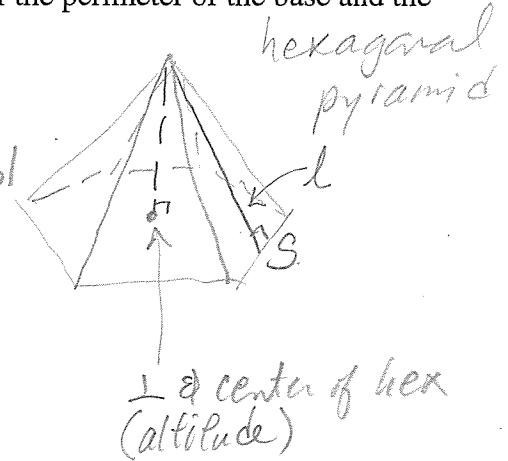 the perimeter of the base and the
hexagonal
pyramid
l
S
⊥ @ center of hex
(altitude)